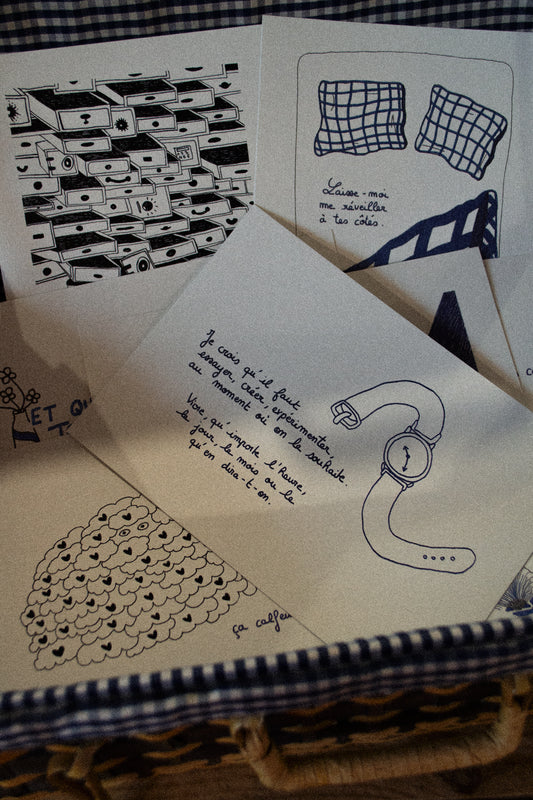 Laisse-moi
me réveiller
à tes côtés.
Je crois qu'il faut
essayer, créer, expérimenter,
au moment où on le souhaite.
Vivre, qu'importe l'heure,
le jour, le mois ou le
qu'en dira-t-on.
ET
ça